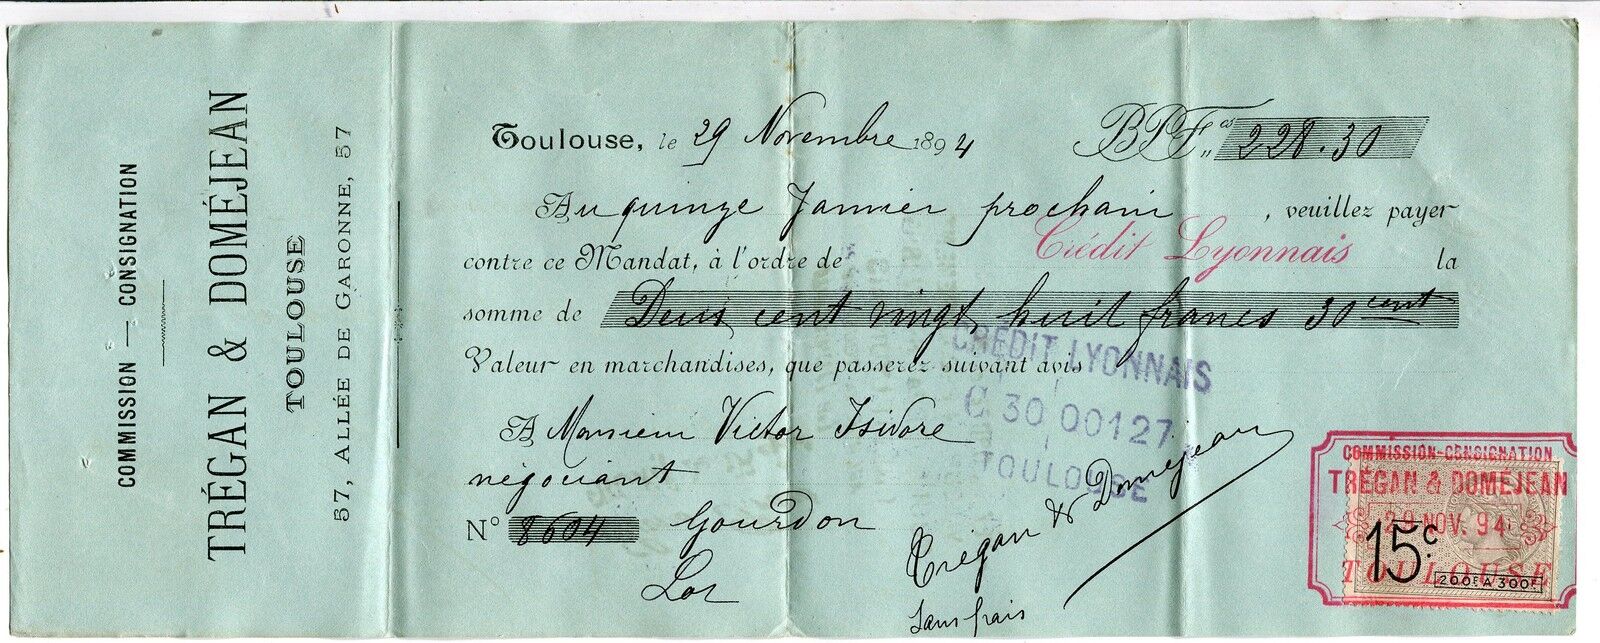 COMMISSION — CONSIGNATION
TRÉGAN & DOMÉJEAN
TOULOUSE
57, ALLÉE DE GARONNE, 57
Toulouse, le 29 Novembre 1894 BPFcs „ 228.30
Au quinze Janvier prochain, veuillez payer
contre ce Mandat, à l'ordre de Crédit Lyonnais la
somme de Deux cent vingt huit francs 30 cent
Valeur en marchandises, que passerez suivant avis
CRÉDIT LYONNAIS
C 30 00127
TOULOUSE
A Monsieur Victor Isidore
négociant
N° 8604 Gourdon
Lot
Trégan & Doméjean
Sans frais
COMMISSION-CONSIGNATION
TRÉGAN & DOMÉJEAN
29 NOV. 94
15c.
TOULOUSE
200F A 300F